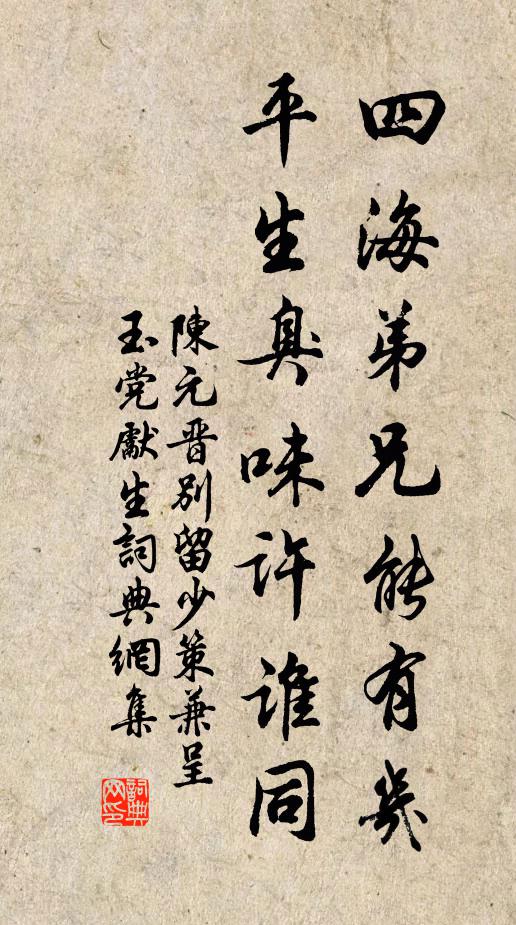 四海弟兄能有幾
平生臭味許誰同
陳元晋別留少策兼呈
玉党獻生詞典網集
詞典网印